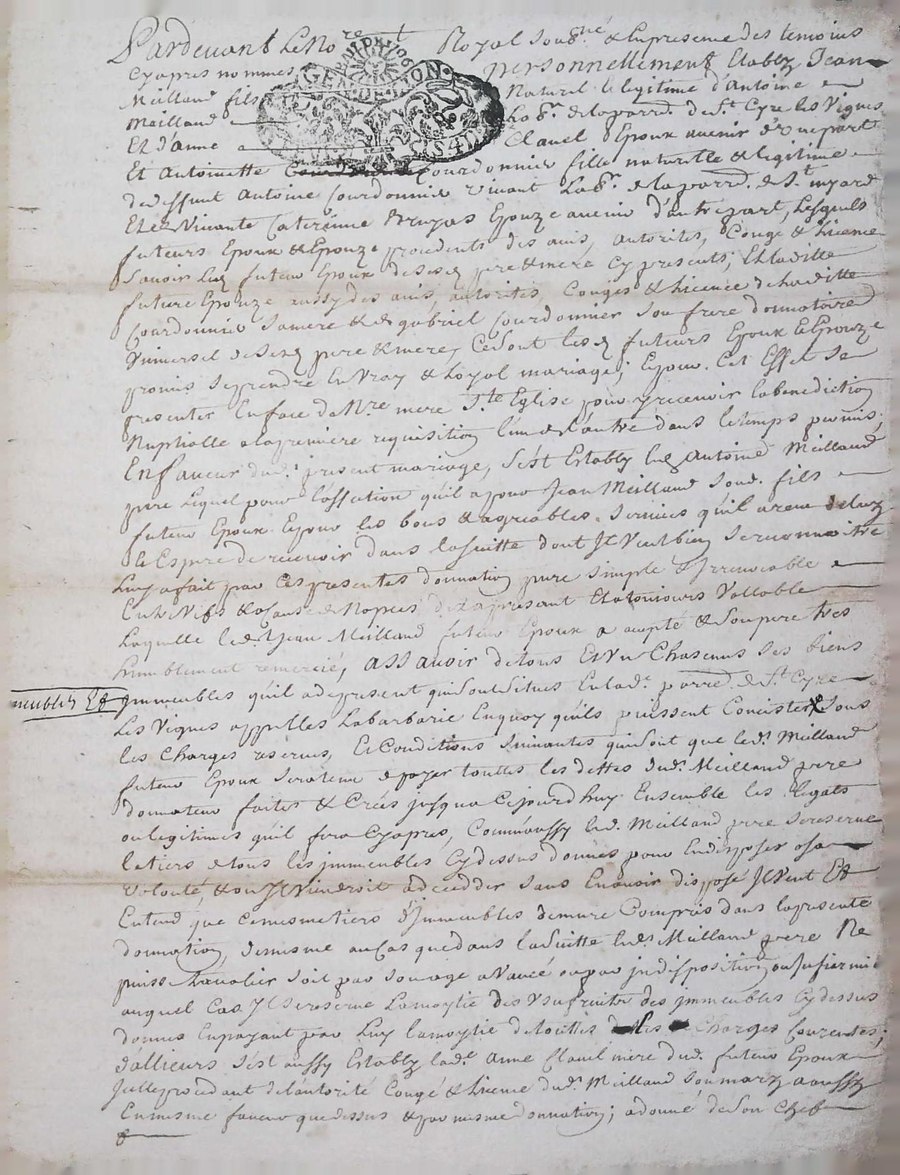 Pardevant le No^re Royal sous^né & en presence des temoins
cyapres nommes personnellement Etably Jean
GEN DE LYON
Meilland fils Naturel & legitime d'Antoine
Meilland Lab^r. de la parr^e. de S^t. Cyre les Vignes
Et d'anne Clauel Epoux avenir d'une part
Et Antoinette Courdonnier fille naturelle & legitime
de deffunt Antoine Courdonnier vivant Lab^r. de la parr^e. de S^t.
Et de Vivante Caterinne Epouze avenir d'autre part, Lesquels
futurs Epoux & Epouze procedents des avis, autorités, Congé & licence
Savoir Led futeur Epoux de sesd pere & mere cy presents; Et la ditte
future Epouze aussy des avis, autorités, Congés & licence de la ditte
sa mere & de gabriel Courdonnier son frere donnatoire
Vniversel de sesd pere & mere, Ce sont lesd futeurs Epoux & Epouze
promis se prendre En vray & Loyal mariage; Epour Cet Effet se
presenter En face de N^re mere S^te Eglise pour y recevoir la benediction
Nuptialle a la premiere requisition l'un de l'autre dans le temps permis;
En faveur dud^t. present mariage, s'est Estably led Antoine Meilland
pere Lequel pour l'affection qu'il a pour Jean Meilland soud. fils
futeur Epoux Epour les bons & agreables services qu'il a receu de luy
& Espere de recevoir dans la suitte dont Il Veut bien se reconnoitre
Luy a fait par ces presentes donnation pure simple & Irrevocable
Entre Vifs & a Cause de Nopces des a present Et a tousiours Vallable
Laquelle led^t Jean Meilland futeur Epoux a accepté & son pere tres
humblement remercié, assavoir de tous Et Vn Chascuns ses biens
meubles Et Immeubles qu'il a de present qui sont situes En lad^e. parr^e. de S^t. Cyre
Les Vignes appelles Labarbarie En quoy qu'ils puissent Concister sous
les Charges reserves, Et Conditions suivantes qui sont que led^t. Meilland
futeur Epoux sera tenu de payer touttes les dettes dud^t. Meilland pere
donnateur faites & Crées jusqua Cejourd'huy Ensemble les legats
ou legitimes qu'il fera Cyapres, Comm'aussy led^t. Meilland pere se reserve
le tiers de tous les immeubles cy dessus donnes pour En disposer a sa
volonté, & ou Il Viendroit a decedder sans En avoir disposé Il Veut Et
Entend que ce mesme tiers d'Immeubles demure Compris dans la presente
donnation, de mesme au Cas que dans la suitte led^t. Meilland pere Ne
puisse travalier soit par son age avancé ou par indisposition ou Infirmité
auquel Cas Il se reserve la moytié des Vsufruits des Immeubles cy dessus
donnes En payant par luy la moytié de toutes les Charges Courentes;
d'allieurs s'est aussy Estably lad^e. Anne Clauel mere dud^t. futeur Epoux
Jcelle procedant de l'autorité Congé & licence dud^t. Meilland son mary a aussy
En mesme faveur que dessus & par mesme donnation; a donné de son Chef